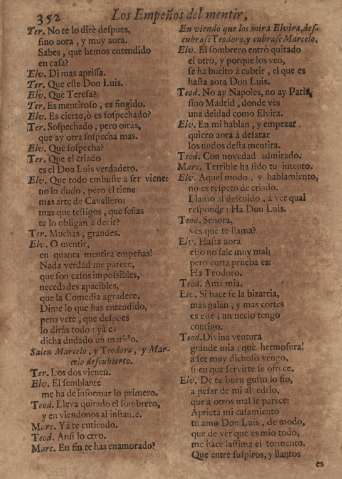 352
Los Empeños del mentir,
Ter. No te lo dirè despues,
sino aora, y muy aora.
Sabes, que hemos entendido
en casa?
Elv. Di mas aprissa.
Ter. Que esse Don Luis.
Elv. Què Teresa?
Ter. Es mentiroso, es fingido.
Elv. Es cierto, ò es sospechado?
Ter. Sospechado, pero otras,
que ay otra sospecha mas.
Elv. Què sospecha?
Ter. Que el criado
es el Don Luis verdadero.
Elv. Que todo embuste a ser viene
no lo dudo, pero èl tiene
mas arte de Cavallero:
mas que testigos, que señas
te lo obligan à decir?
Ter. Muchas, grandes.
Elv. O mentir,
en quanta mentira empeñas!
Nada verdad me parece,
que son casos impossibles,
necedades apacibles,
que la Comedia agradece.
Dime lo que has entendido,
pero vete, que despues
lo dirás todo: ya es
dicha dudado un marido.
Salen Marcelo, y Teodoro, y Mar-
celo descubierto.
Ter. Los dos vienen.
Elv. El semblante
me ha de informar lo primero.
Teod. Lleva quitado el sombrero,
y en viendonos al instante.
Marc. Yà te entiendo.
Teod. Ansi lo creo.
Marc. En fin te has enamorado?
En viendo que los mira Elvira, des-
cubrase Teodoro, y cubrase Marcelo.
Elv. El sombrero entrò quitado
el otro, y porque los veo,
se ha buelto à cubrir, el que es
hasta aora Don Luis.
Teod. No ay Napoles, no ay Paris,
sino Madrid, donde vès
una deidad como Elvira.
Elv. En mi hablan, y empezar
quiero aora à desatar
los nudos desta mentira.
Teod. Con novedad admirado.
Marc. Terrible ha sido tu intento.
Elv. Aquel modo, y hablamiento,
no es respeto de criado.
Llamo al destenido, à ver qual
responde: Ha Don Luis.
Teod. Señora,
ves que te llama?
Elv. Hasta aora
esto no sale muy mal;
pero corta prueba es:
Ha Teodoro.
Teod. Ama mia.
Elv. Si hace se la bizarria,
mas galan, y mas cortès
es este: un necio tengo
consigo.
Teod. Divina ventura
grande mia; què hermosura!
à ser muy dichoso vengo,
si en que servirte se ofrece.
Elv. De tu buen gusto lo fio,
à pesar de mi alvedrio,
que à otros mal le parece:
Aprieta mi casamiento
tu amo Don Luis, de modo,
que de vèr que es mio todo,
me hace lastima el tormento.
Que entre suspiros, y llantos
es